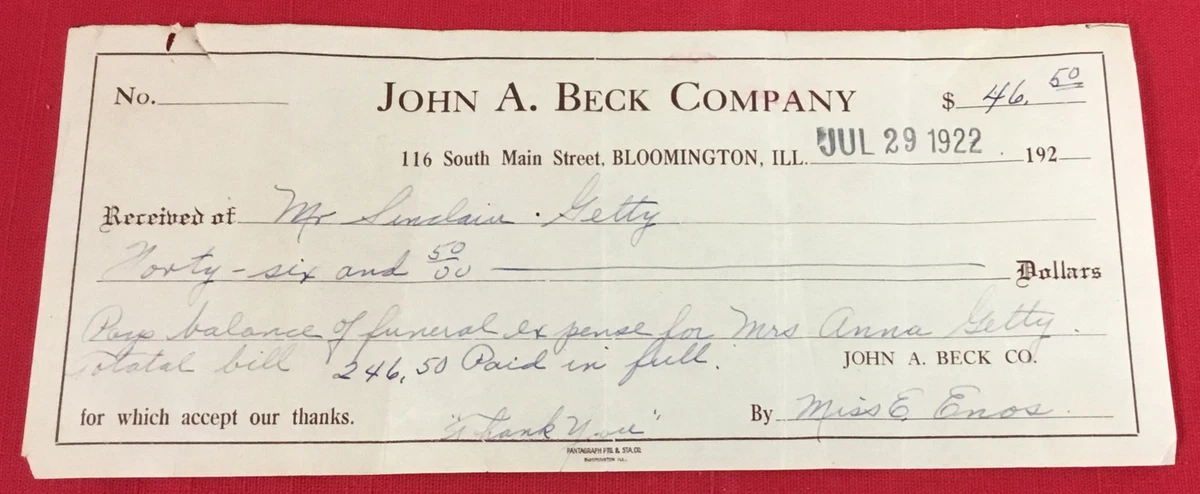 No. JOHN A. BECK COMPANY $ 46.50
116 South Main Street, BLOOMINGTON, ILL. JUL 29 1922 192
Received of Mr Sinclair Getty
Forty-six and 50/00 Dollars
Pays balance of funeral expense for Mrs Anna Getty.
Totatal bill 246.50 Paid in full.
JOHN A. BECK CO.
for which accept our thanks. "Thank You" By Miss E. Enos.
PANTAGRAPH PTG. & STA. CO.
BLOOMINGTON, ILL.